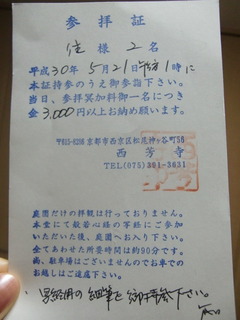 参拝証
様 2名
平成30年 5月21日 午后1時に
本証持参のうえ御参詣下さい。
当日、参拝冥加料御一名につき
金 3,000円以上お納め願います。
〒615-8286 京都市西京区松尾神ヶ谷町56
西芳寺
TEL(075)391-3631
庭園だけの拝観は行っておりません。
本堂にて般若心経の写経にご参加
いただいた後、庭園へお入り下さい。
全てあわせた所要時間は約90分です。
尚、駐車場はございませんのでお車での
お越しはご遠慮下さい。
写経用の細筆を御持参下さい。